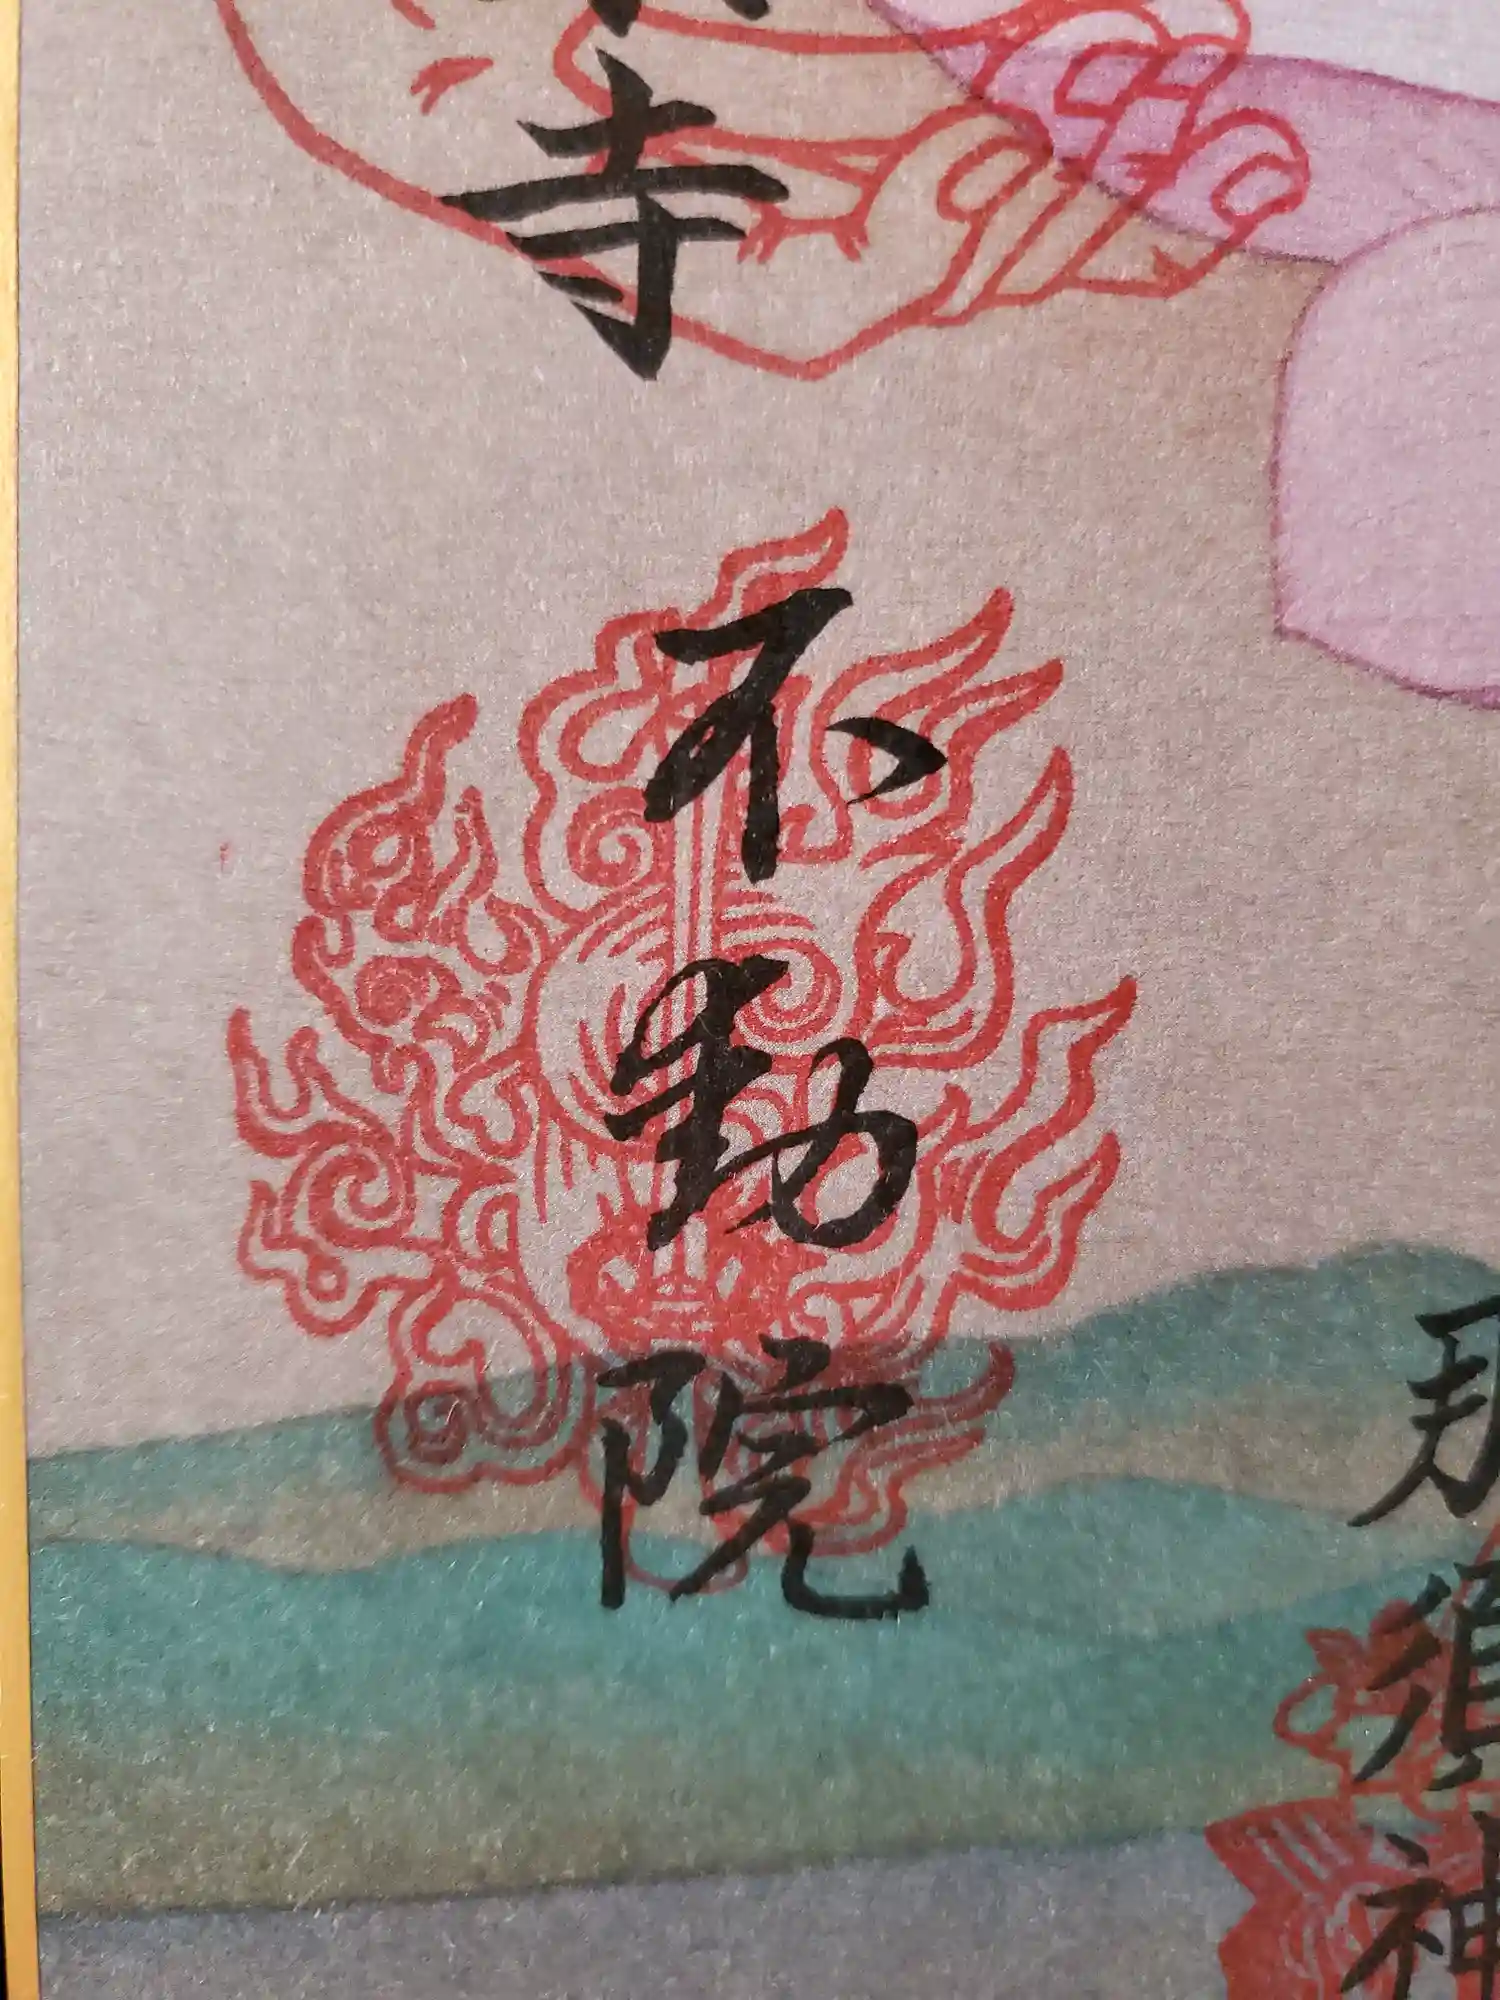 寺
不動院
那須神